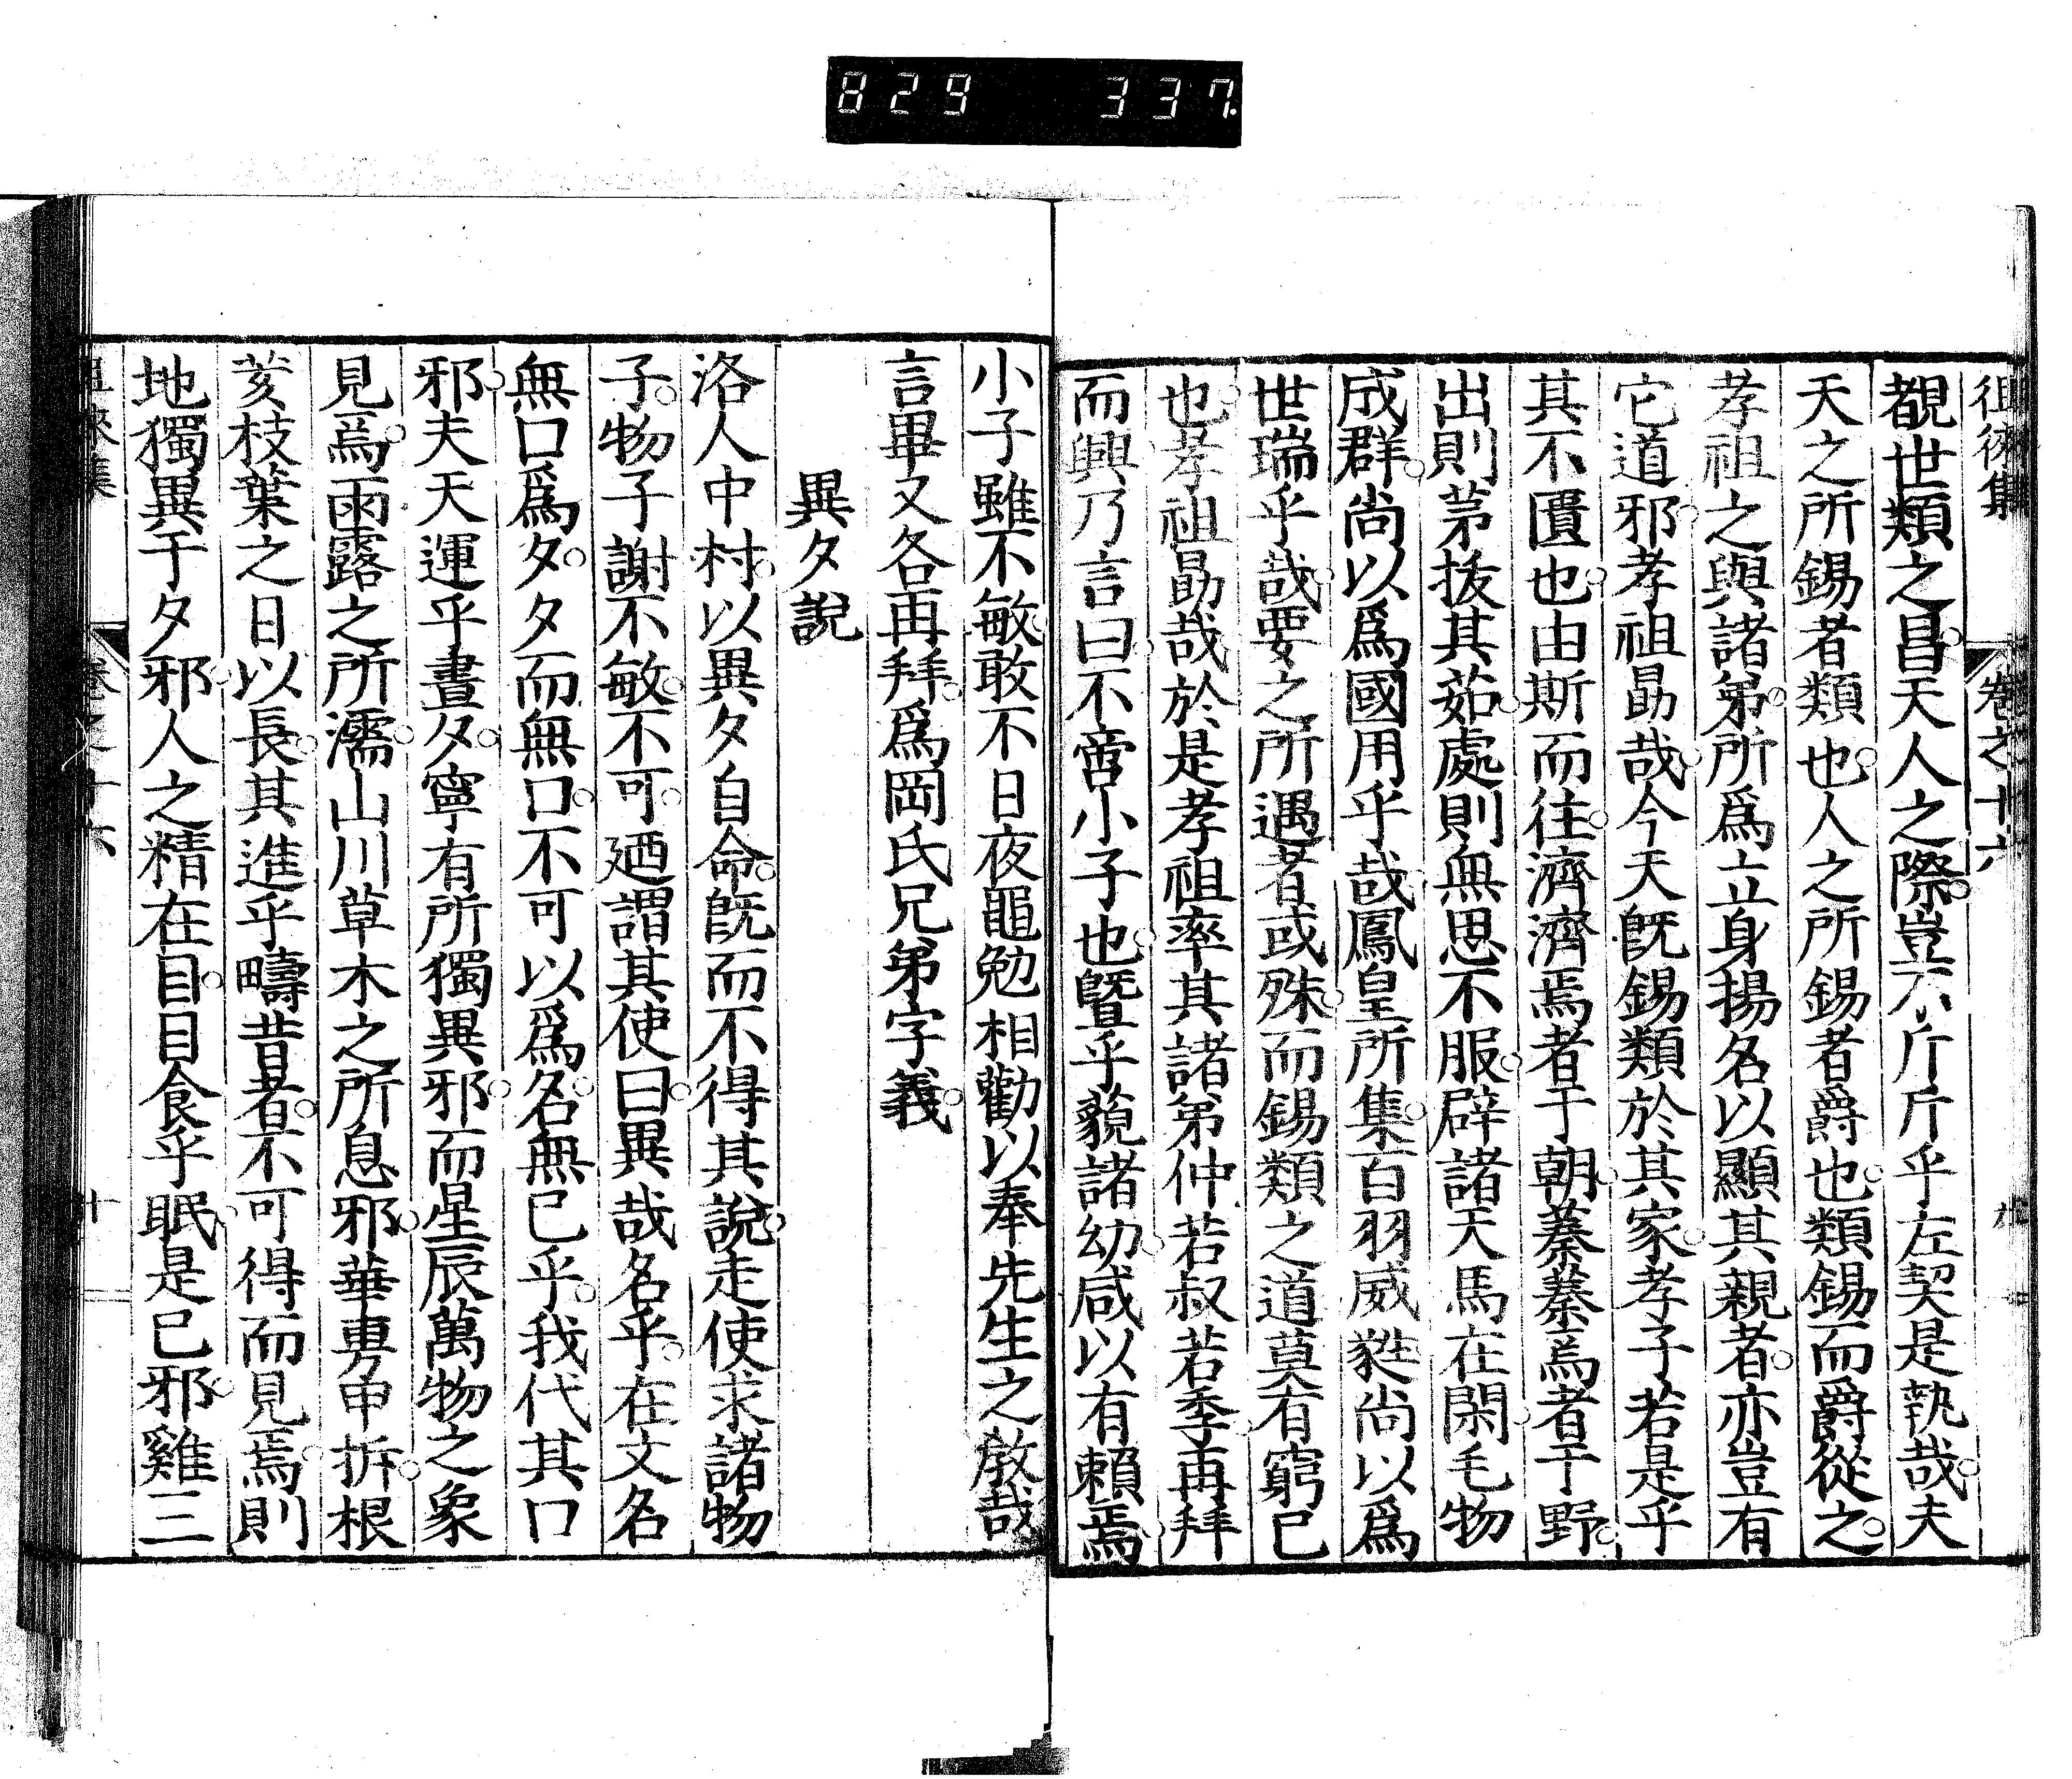 829 337
徂徠集 卷之十六 九
覩世類之昌天人之際豈不斤斤乎左契是執哉夫
天之所錫者類也人之所錫者爵也類錫而爵從之
孝祖之與諸弟所爲立身揚名以顯其親者亦豈有
它道邪孝祖勗哉今天既錫類於其家孝子若是乎
其不匱也由斯而往濟濟焉者于朝蓁蓁焉者于野
出則茅拔其茹處則無思不服辟諸天馬在閑毛物
成群尚以爲國用乎哉鳳皇所集百羽威蕤尚以爲
世瑞乎哉要之所遇者或殊而錫類之道莫有窮已
也孝祖勗哉於是孝祖率其諸弟仲若叔若季再拜
而興乃言曰不啻小子也曁乎藐諸幼咸以有賴焉
小子雖不敏敢不日夜黽勉相勸以奉先生之教哉
言畢又各再拜爲岡氏兄弟字義
異夕說
洛人中村以異夕自命既而不得其說走使求諸物
子物子謝不敏不可廼謂其使曰異哉名乎在文名
無口爲夕夕而無口不可以爲名無已乎我代其口
邪夫天運乎晝夕寧有所獨異邪而星辰萬物之象
見焉雨露之所濡山川草木之所息邪華甹甲拆根
荄枝葉之日以長其進乎疇昔者不可得而見焉則
地獨異于夕邪人之精在目目食乎眠是已邪雞三
徂徠集 卷之十六 十